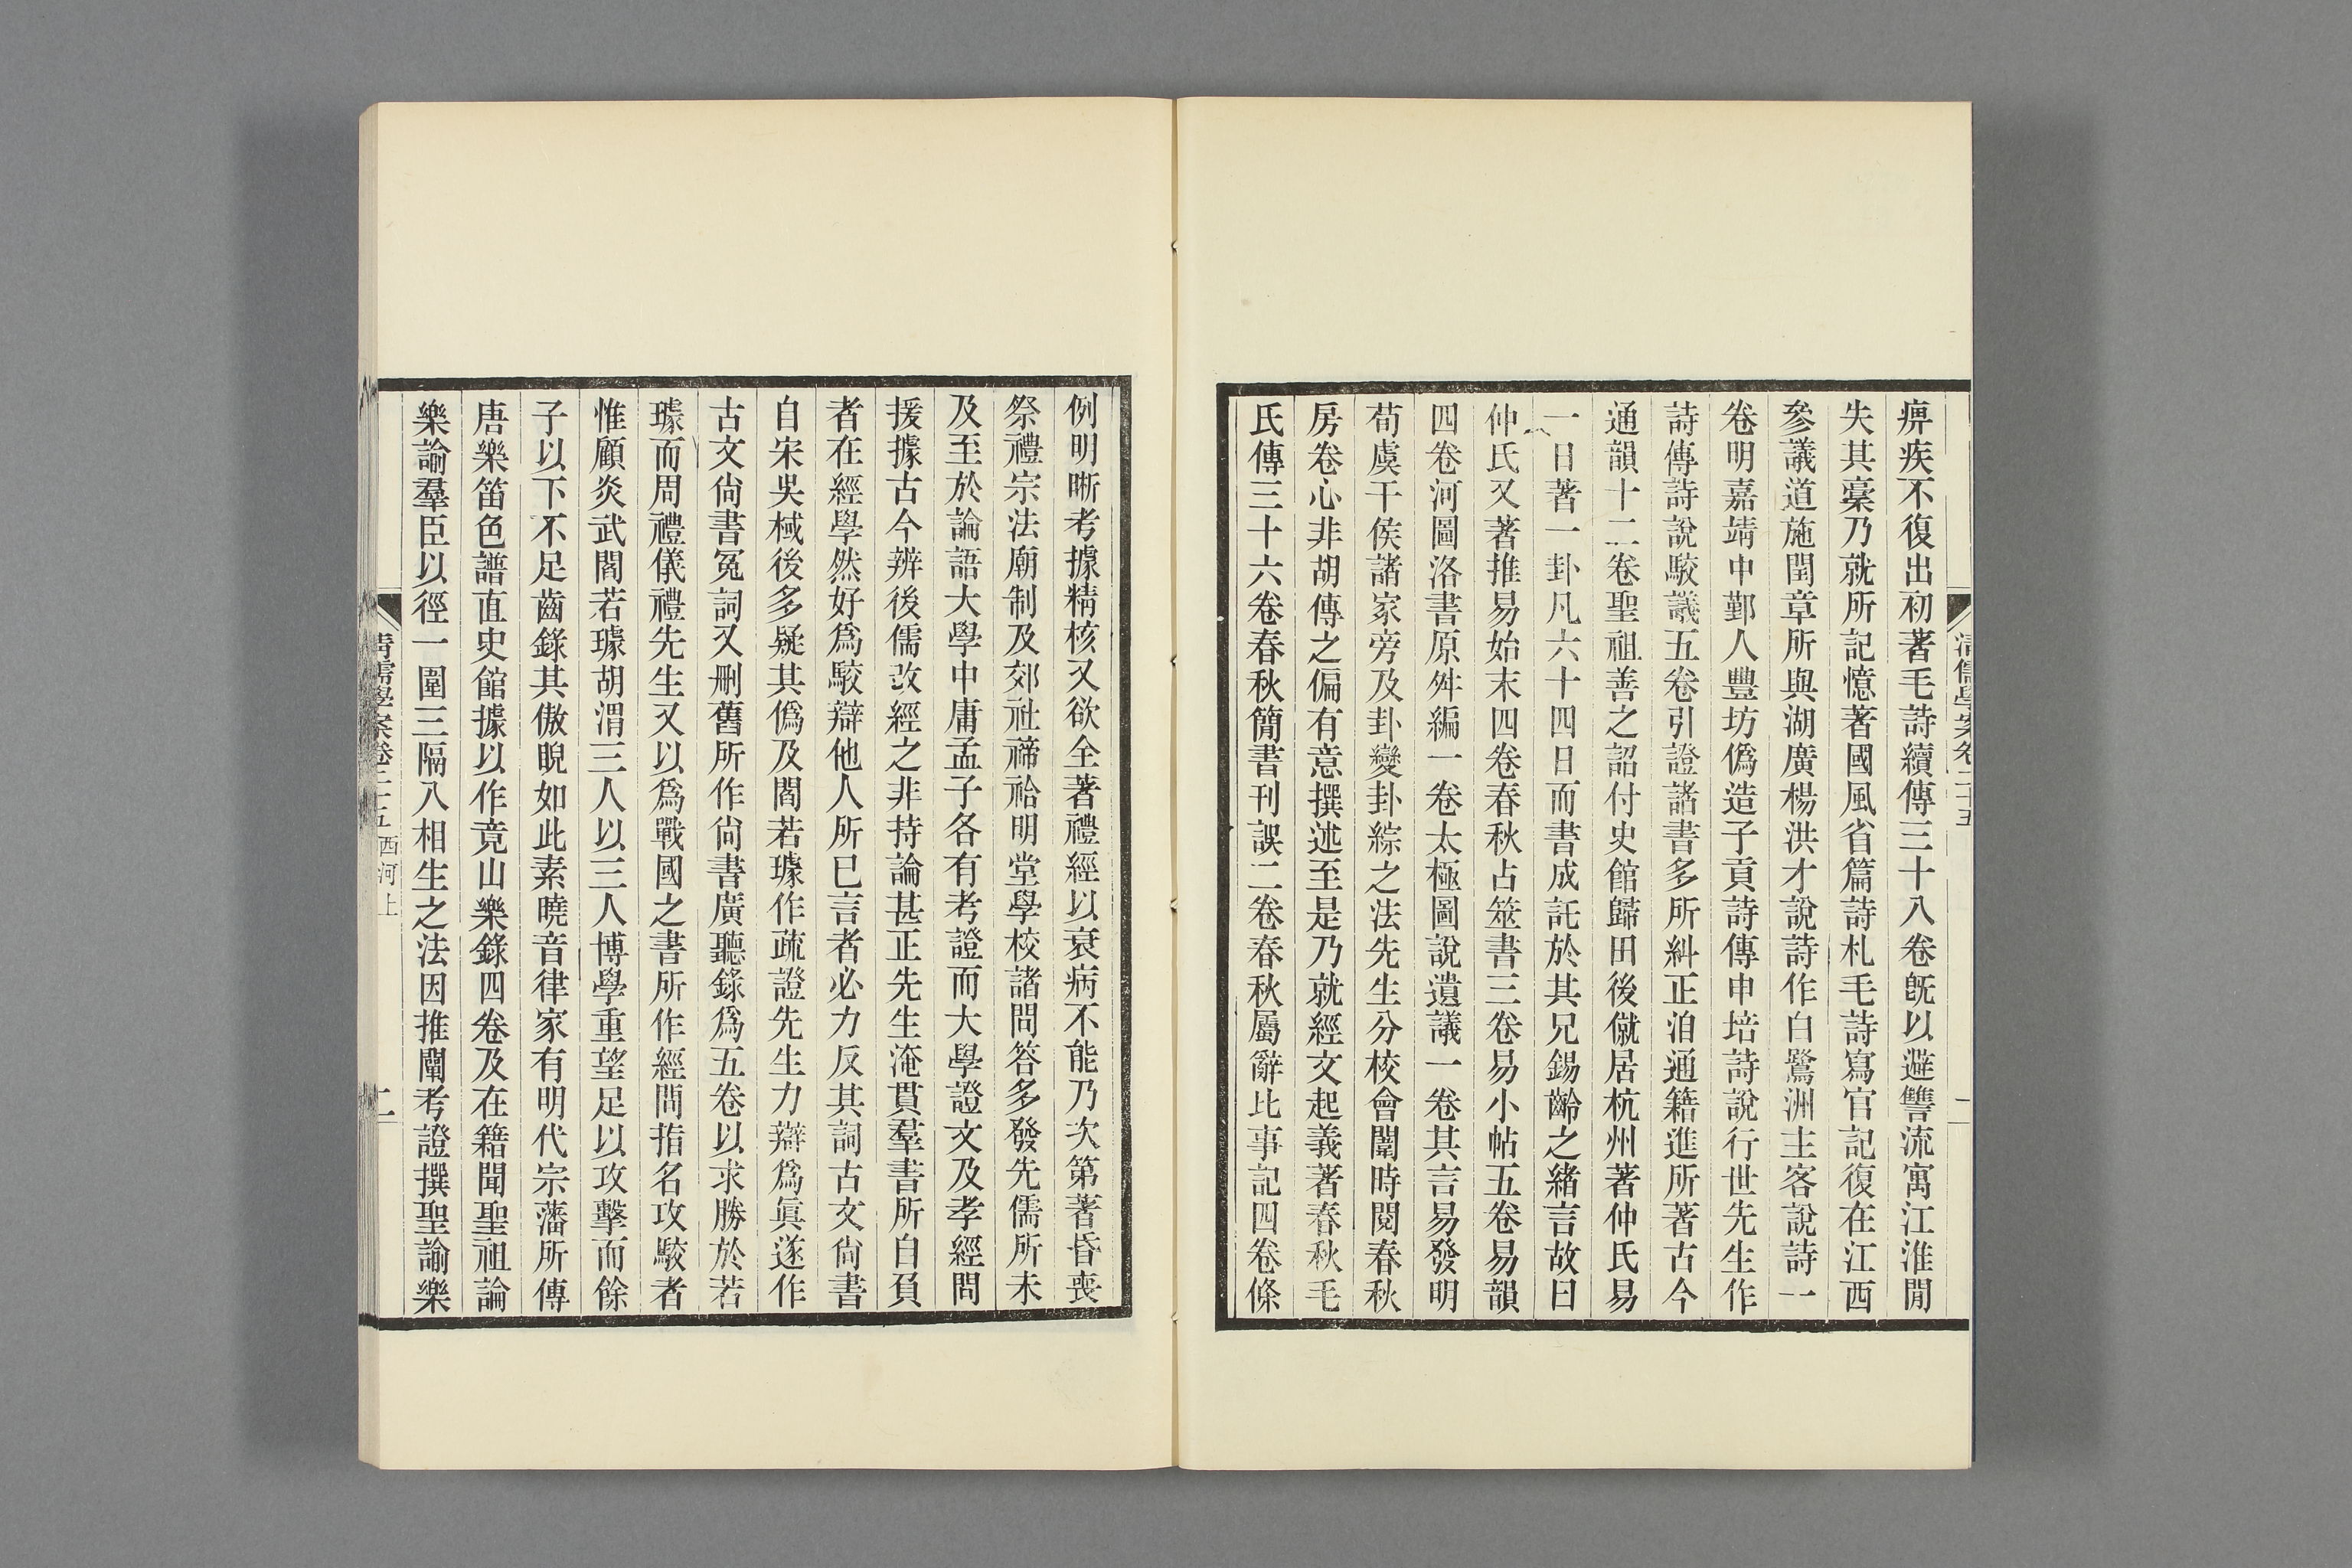 清儒學案卷二十五
一
痹疾不復出初著毛詩續傳三十八卷旣以避讐流寓江淮間
失其稾乃就所記憶著國風省篇詩札毛詩寫官記復在江西
參議道施閏章所與湖廣楊洪才說詩作白鷺洲主客說詩一
卷明嘉靖中鄞人豐坊僞造子貢詩傳申培詩說行世先生作
詩傳詩說駮議五卷引證諸書多所糾正洎通籍進所著古今
通韻十二卷聖祖善之詔付史館歸田後僦居杭州著仲氏易
一日著一卦凡六十四日而書成託於其兄錫齡之緒言故曰
仲氏又著推易始末四卷春秋占筮書三卷易小帖五卷易韻
四卷河圖洛書原舛編一卷太極圖說遺議一卷其言易發明
荀虞干侯諸家旁及卦變卦綜之法先生分校會闈時閱春秋
房卷心非胡傳之偏有意撰述至是乃就經文起義著春秋毛
氏傳三十六卷春秋簡書刊誤二卷春秋屬辭比事記四卷條
例明晰考據精核又欲全著禮經以衰病不能乃次第著昏喪
祭禮宗法廟制及郊社禘祫明堂學校諸問答多發先儒所未
及至於論語大學中庸孟子各有考證而大學證文及孝經問
援據古今辨後儒改經之非持論甚正先生淹貫羣書所自負
者在經學然好爲駮辯他人所已言者必力反其詞古文尙書
自宋吳棫後多疑其僞及閻若璩作疏證先生力辯爲眞遂作
古文尙書冤詞又删舊所作尙書廣聽錄爲五卷以求勝於若
璩而周禮儀禮先生又以爲戰國之書所作經問指名攻駮者
惟顧炎武閻若璩胡渭三人以三人博學重望足以攻擊而餘
子以下不足齒錄其傲睨如此素曉音律家有明代宗藩所傳
唐樂笛色譜直史館據以作竟山樂錄四卷及在籍聞聖祖論
樂諭羣臣以徑一圍三隔八相生之法因推闡考證撰聖諭樂
清儒學案卷二十五 西河上
二